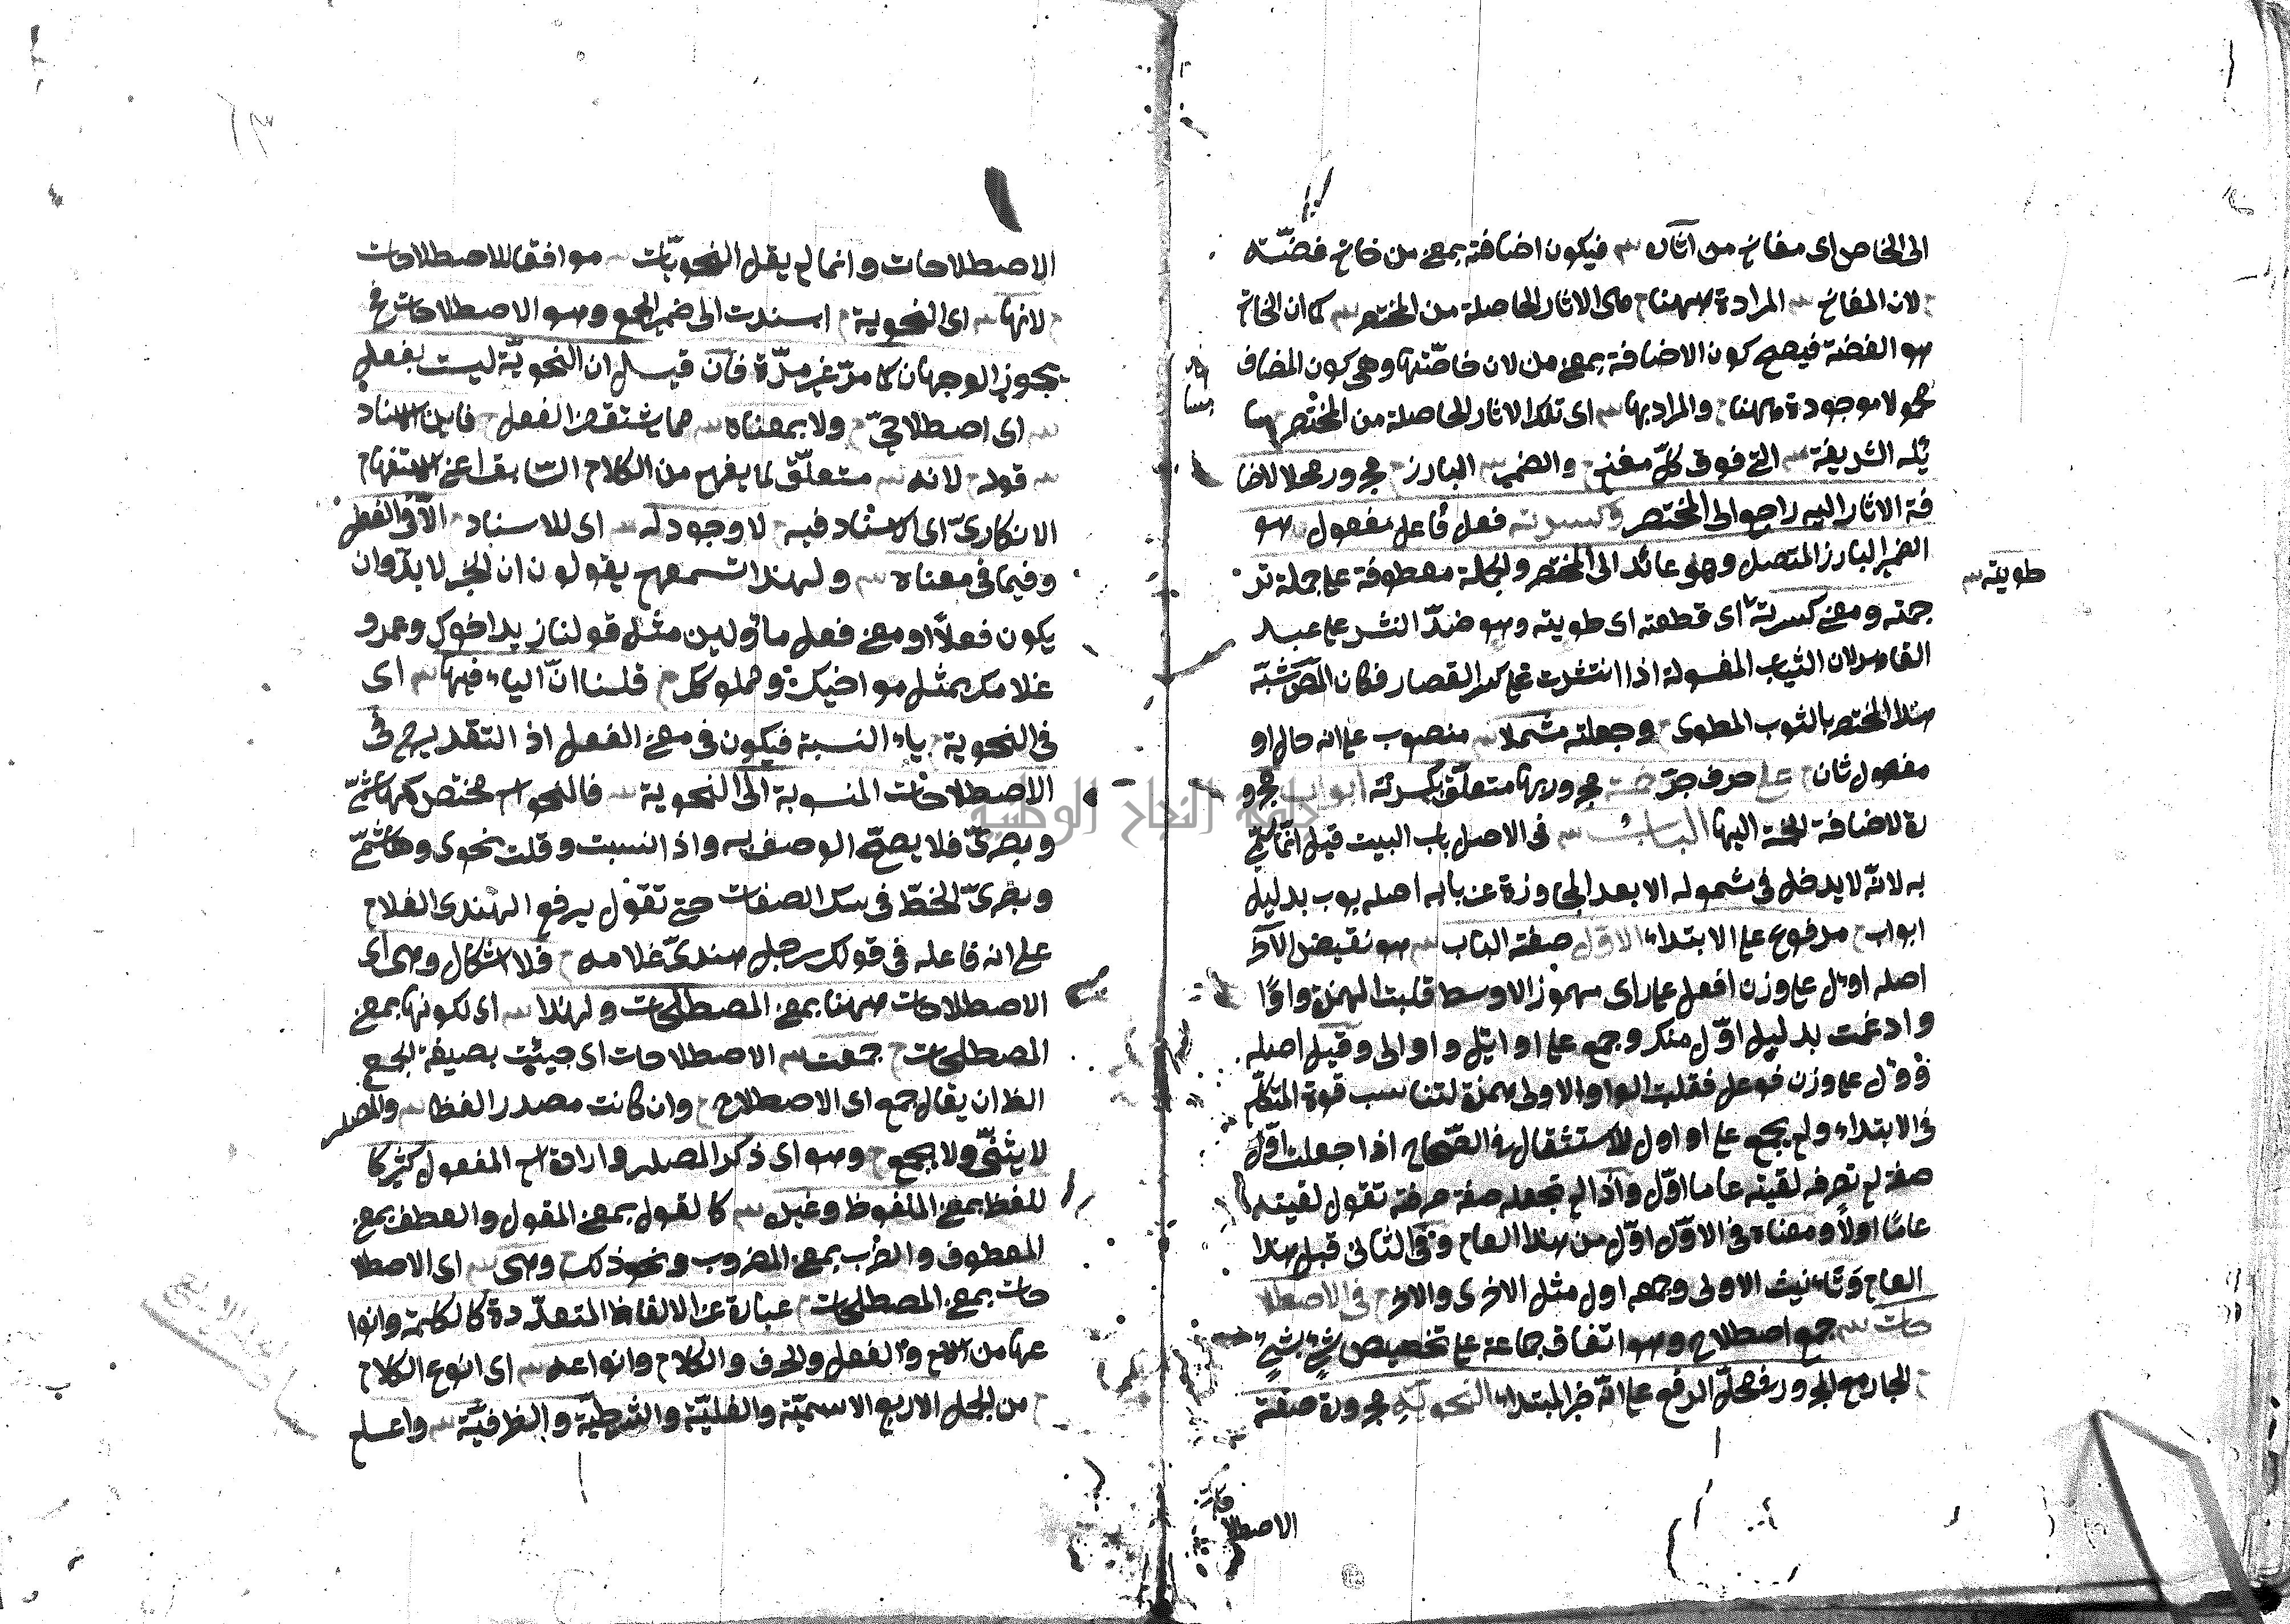 الى الخاص اى مفاتح من اثاره فيكون اضافة بمعنى من خاتم فضّة
لان المفاتح المرادة ههنا هى الاثار الحاصلة من المختصر كما ان الخاتم
هو الفضة فيصح كون الاضافة بمعنى من لان خاصّتها وهى كون المضاف
محمولا موجودة ههنا والمراد بها اى تلك الاثار الحاصلة من المختصر
الشريفة التى فوق كلّ مغنى والضمير البارز مجرور محلا لاضا
فة الاثار اليه راجع الى المختصر وكسرته فعل فاعل مفعول هو
الضمير البارز المتصل وهو عائد الى المختصر والجملة معطوفة على جملة تر
جمته ومعنى كسرته اى قطعته اى طويته وهو ضدّ النشر على
لان الثياب المغسولة اذا انتشرت القصار فكان المص شبّه
هذا المختصر بالثوب المطوى وجعلته مشملا منصوب على انه حال او
مفعول ثان على حرف جرّ خمسة مجرور بها متعلّق بكسرته ابواب مجرو
رة لاضافة الخمسة اليها الباب فى الاصل باب البيت قيل انّما سمّى
به لانّه لا يدخل فى شموله الا بعد المجاوزة عن بابه اصله بوب بدليل
ابواب مرفوع على الابتداء الاوّل صفة الباب هو نقيض الآخر
اصله اوئل على وزن افعل مهموز الاوسط قلبت الهمزة واوًا
وادغمت بدليل اوّل منك وجمع على اوائل واوالى وقيل اصله
ووئل على وزن فوعل فقلبت الواو الاولى همزة لتناسب قوة المتكلّم
فى الابتداء ولم يجمع على اواول للاستثقال فى الصّحاح اذا جعلت اوّل
صفة لم تصرفه لقيته عاما اوّل واذا لم تجعله صفة صرفته تقول لقيته
عامًا اولًا ومعناه فى الاوّل اوّل من هذا العام وفى الثانى قبل هذا
العام وتانيث الاولى وجمعه اول مثل الاخرى والاخر فى الاصطلا
حات جمع اصطلاح وهو اتفاق جماعة على تخصيص شئ بشئ
الجار مع المجرور فى محلّ الرفع على انّه خبر المبتداء النحويّة مجرورة صفة
طويته
الاصطلا
الاصطلاحات وانما لم يقل النحويّات موافقا للاصطلاحات
لانها اى النحوية اسندت الى ضمير الجمع وهو الاصطلاحات فح
يجوز الوجهان كما مرّ غير مرّة فان قيل ان النحويّة ليست بفعل
اى اصطلاحىّ ولا بمعناه مما يشتق من الفعل فاين الاسناد
قوله لانه متعلّق لما يفهم من الكلام السابق اعنى الاستفهام
الانكارىّ اى الاسناد فيه لا وجود له اى للاسناد الّا فى الفعل
وفيما فى معناه ولهذا تسمعهم يقولون ان الخبر لا بدّ وان
يكون فعلًا او معنى فعل ماوّلين مثل قولنا زيد اخوك وعمرو
غلامك بمثل مواخيك ومملوكك قلنا انّ الياء فيها اى
فى النحوية ياء النسبة فيكون فى معنى الفعل اذ التقدير فى
الاصطلاحات المنسوبة الى النحوية فالنحو اسم مختص كهاشمّ
وبصرىّ فلا يصحّ الوصف به واذا نسبت وقلت نحوى وهاشمىّ
وبصرىّ انخطّ فى سلك الصفات حتى تقول يرفع الهندى الغلام
على انه فاعله فى قولك رجل هندىّ غلامه فلا اشكال وهى اى
الاصطلاحات ههنا بمعنى المصطلحات ولهذا اى لكونها بمعنى
المصطلحات جمعت الاصطلاحات اى جيئت بصيغة الجمع
الظ ان يقال جمع اى الاصطلاح وان كانت مصدر الفظا والمصدر
لا يثنّى ولا يجمع وهو اى ذكر المصدر وارادة اسم المفعول كثير كا
للفظ بمعنى الملفوظ وغيره كالقول بمعنى المقول والعطف بمعنى
المعطوف والضرب بمعنى المضروب ونحو ذلك وهى اى الاصطلا
حات بمعنى المصطلحات عبارة عن الالفاظ المتعدّدة كالكلمة وانوا
عها من الاسم والفعل والحرف والكلام وانواعه اى انوع الكلام
من الجمل الاربع الاسميّة والفعليّة والشرطيّة والظرفيّة واعلم
جامعة النجاح الوطنية